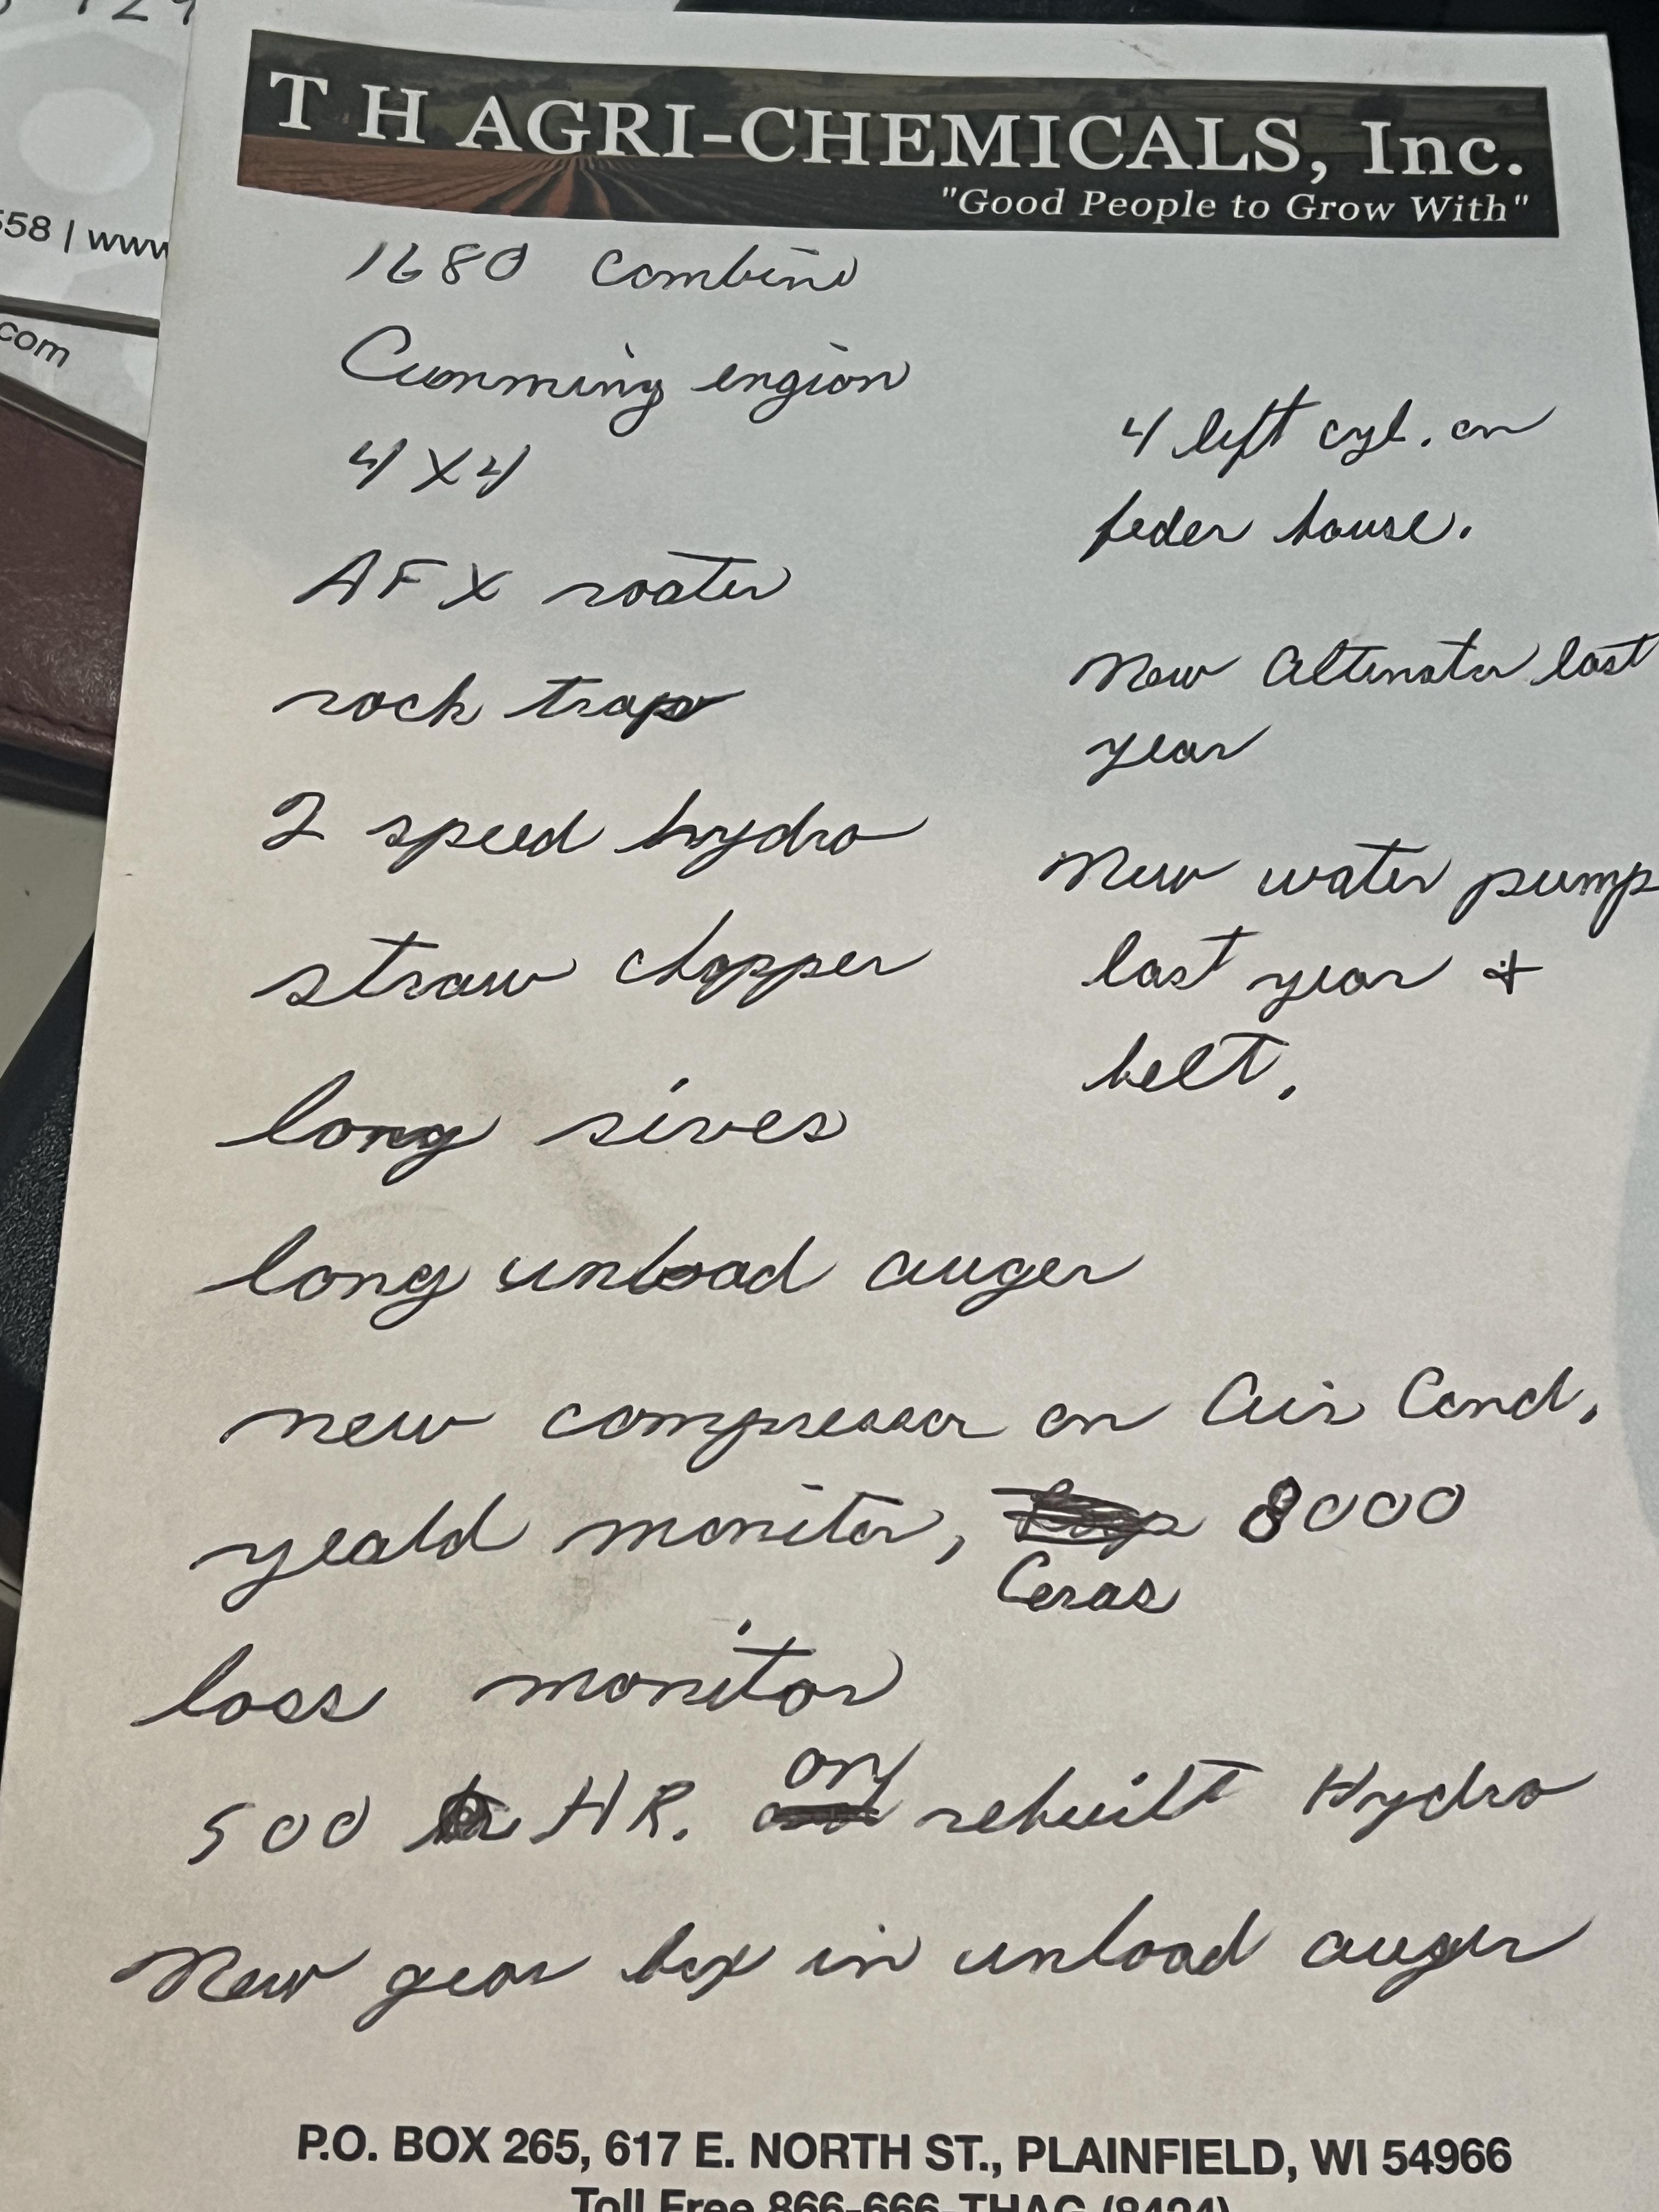 558 | www
.com
T H AGRI-CHEMICALS, Inc.
"Good People to Grow With"
1680 combine
Cumming engion
4X4
AFX roater
rock trap
2 speed hydro
straw chopper
long sives
long unload auger
4 left cyl. on
feder house.
New Altenator last
year
New water pump
last year +
belt.
new compressor on Air Cond.
yeald monitor, 8000
Ceras
loss monitor
500 HR. on rebuilt Hydro
New gear box in unload auger
P.O. BOX 265, 617 E. NORTH ST., PLAINFIELD, WI 54966
Toll Free 866-666-THAC (8424)